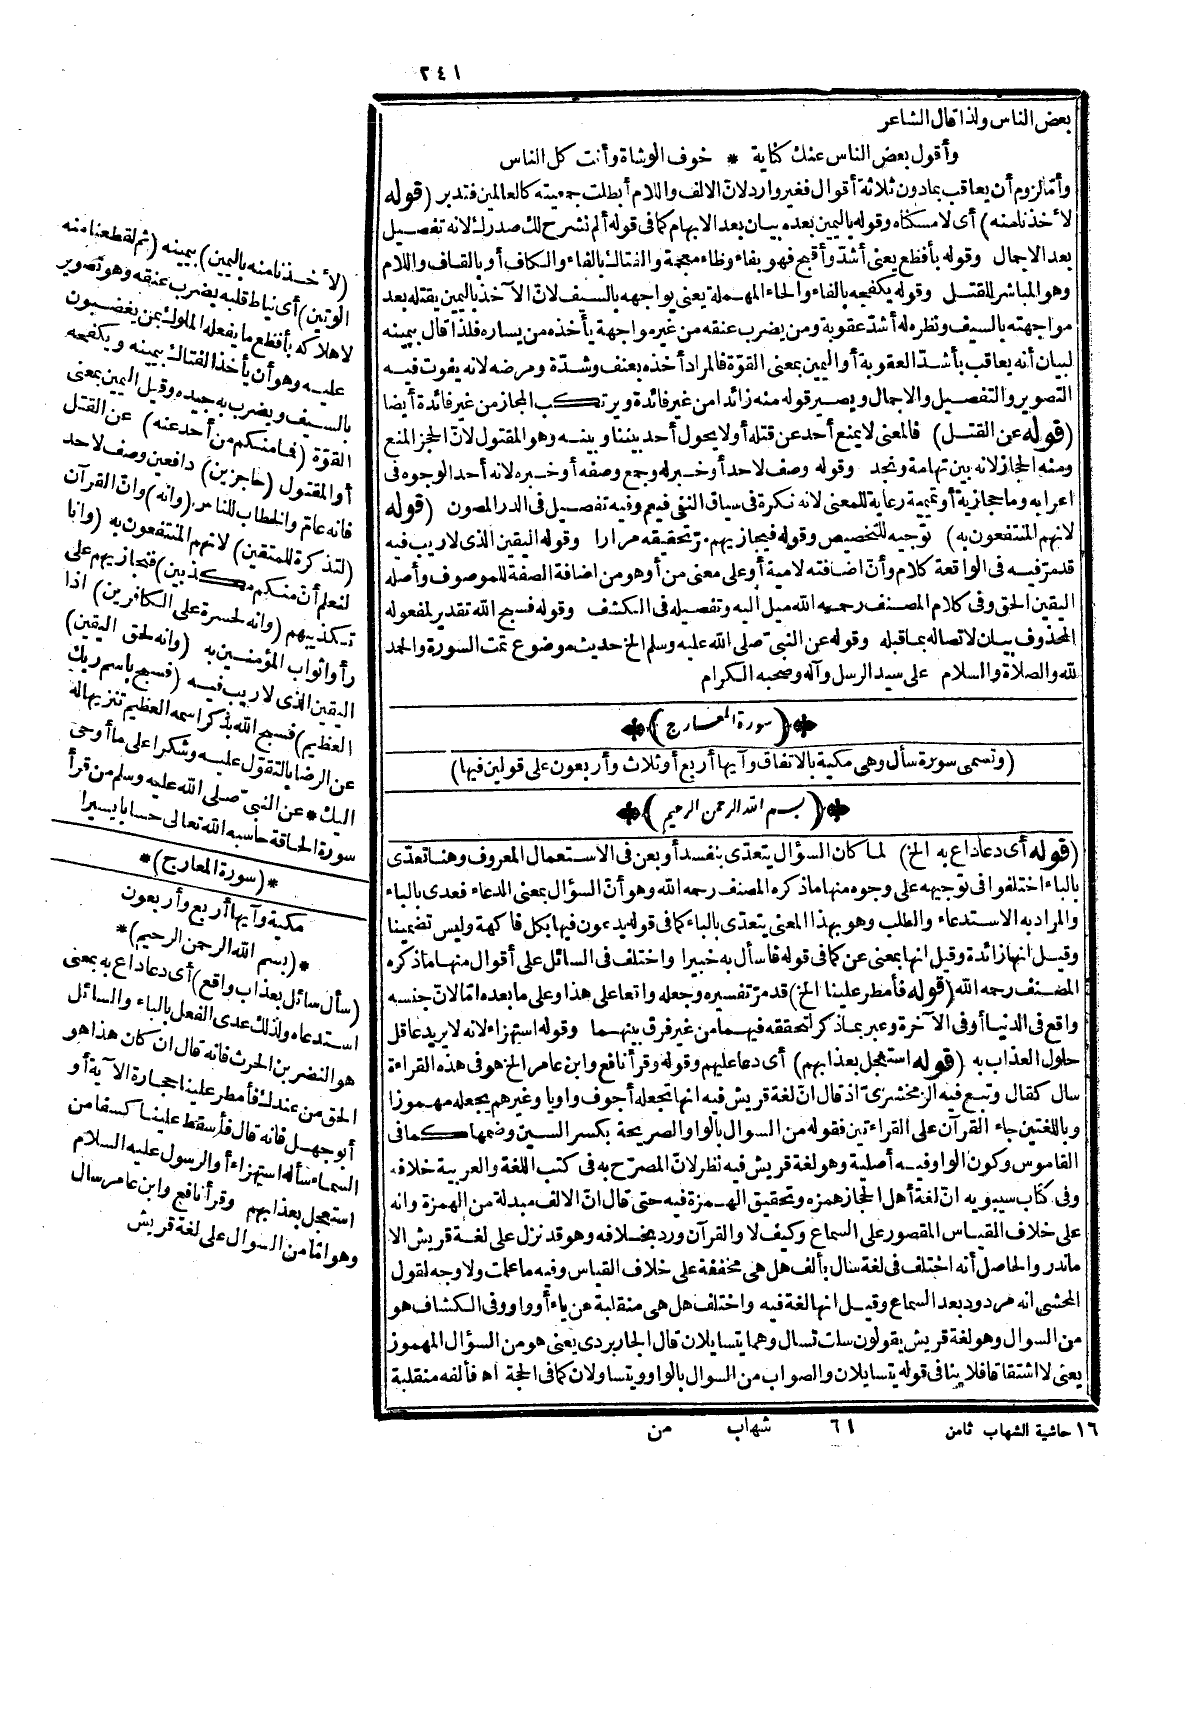 ٢٤١
بعض الناس ولذا قال الشاعر
وأقول بعض الناس عنك كناية * خوف الوشاة وأنت كل الناس
وأمّا لزوم أن يعاقب بمادون ثلاثة أقوال فغير وارد لانّ الالف واللام أبطلت جمعيته كالعالمين فتدبر (قوله
لأخذنا منه) أى لامسكناه وقوله باليمين بعده بيان بعد الابهام كما فى قوله ألم نشرح لك صدرك لانه تفصيل
بعد الاجمال وقوله بأفظع يعنى أشدّ وأقبح فهو بفاء وظاء معجمة والفتاك بالفاء والكاف أو بالقاف واللام
وهو المباشر للقتل وقوله يكفحه بالفاء والحاء المهملة يعنى يواجهه بالسيف لانّ الآخذ باليمين يقتله بعد
مواجهته بالسيف ونظره له أشدّ عقوبة ومن يضرب عنقه من غير مواجهة يأخذه من يساره فلذا قال بيمينه
لبيان أنه يعاقب بأشد العقوبة أو اليمين بمعنى القوّة فالمراد أخذه بعنف وشدّة ومرضه لانه يفوت فيه
التصوير والتفصيل والاجمال ويصير قوله منه زائدا من غير فائدة ويرتكب المجاز من غير فائدة أيضا
(قوله عن القتل) فالمعنى لا يمنع أحد عن قتله أو لا يحول أحد بيننا وبينه وهو المقتول لانّ الحجز المنع
ومنه الحجاز لانه بين تهامة ونجد وقوله وصف لاحد أو خبر له وجمع وصفه أو خبره لانه أحد الوجوه فى
اعرابه وما حجازية أو تميمية رعاية للمعنى لانه نكرة فى سياق النفى فيعم وفيه تفصيل فى الدر المصون (قوله
لانهم المنتفعون به) توجيه للتخصيص وقوله فيجازيهم مرّ تحقيقه مرارا وقوله اليقين الذى لاريب فيه
قد مرّ فيه فى الواقعة كلام وأنّ اضافته لامية أو على معنى من أو هو من اضافة الصفة للموصوف وأصله
اليقين الحق وفى كلام المصنف رحمه الله ميل اليه وتفصيله فى الكشف وقوله فسبح الله تقدير لمفعوله
المحذوف بيان لاتصاله بما قبله وقوله عن النبىّ صلى الله عليه وسلم الخ حديث موضوع تمت السورة والحمد
لله والصلاة والسلام على سيد الرسل وآله وصحبه الكرام
(سورة المعارج)
(وتسمى سورة سأل وهى مكية بالاتفاق وآيها أربع أو ثلاث وأربعون على قولين فيها)
(بسم الله الرحمن الرحيم)
(قوله أى دعا داع به الخ) لما كان السؤال يتعدّى بنفسه أو بعن فى الاستعمال المعروف وهنا تعدّى
بالباء اختلفوا فى توجيهه على وجوه منها ما ذكره المصنف رحمه الله وهو أنّ السؤال بمعنى الدعاء فعدى بالباء
والمراد به الاستدعاء والطلب وهو بهذا المعنى يتعدى بالباء كما فى قوله يدعون فيها بكل فاكهة وليس تضمينا
وقيل انها زائدة وقيل انها بمعنى عن كما فى قوله فاسأل به خبيرا واختلف فى السائل على أقوال منها ما ذكره
المصنف رحمه الله (قوله فأمطر علينا الخ) قد مرّ تفسيره وجعله واقعا على هذا وعلى ما بعده امّا لانّ جنسه
واقع فى الدنيا أو فى الآخرة وعبر بما ذكر لتحققه فيهما من غير فرق بينهما وقوله استهزاء لانه لا يريد عاقل
حلول العذاب به (قوله استعجل بعذابهم) أى دعا عليهم وقوله وقرأ نافع وابن عامر الخ هو فى هذه القراءة
سال كقال وتبع فيه الزمخشرىّ اذ قال انّ لغة قريش فيه انها تجعله أجوف واويا وغيرهم يجعله مهموزا
وباللغتين جاء القرآن على القراءتين فقوله من السوال بالواو الصريحة بكسر السين وضمها كما فى
القاموس وكون الواو فيه أصلية وهو لغة قريش فيه نظر لانّ المصرّح به فى كتب اللغة والعربية خلافه
وفى كتاب سيبويه انّ لغة أهل الحجاز همزه وتحقيق الهمزة فيه حتى قال انّ الالف مبدلة من الهمزة وانه
على خلاف القياس المقصور على السماع وكيف لا والقرآن ورد بخلافه وهو قد نزل على لغة قريش الا
ما ندر والحاصل أنه اختلف فى لغة سال بألف هل هى مخففة على خلاف القياس وفيه ما علمت ولا وجه لقول
المحشى انه مردود بعد السماع وقيل انها لغة فيه واختلف هل هى منقلبة عن ياء أو واو وفى الكشاف هو
من السوال وهو لغة قريش يقولون سلت تسال وهما يتسايلان قال الجاربردى يعنى هو من السؤال المهموز
يعنى لا اشتقاقا فلا ينافى قوله يتسايلان والصواب من السوال بالواو ويتساولان كما فى الحجة اه فألفه منقلبة
١٦ حاشية الشهاب ثامن ٦١ شهاب من
(لأخذنا منه باليمين) بيمينه (ثم لقطعنا منه
الوتين) أى نياط قلبه بضرب عنقه وهو تصوير
لاهلاكه بأفظع ما يفعله الملوك بمن يغضبون
عليه وهو أن يأخذ الفتاك بيمينه ويكفحه
بالسيف ويضرب به جيده وقيل اليمين بمعنى
القوّة (فما منكم من أحد عنه) عن القتل
أو المقتول (حاجزين) دافعين وصف لاحد
فانه عامّ والخطاب للناس (وانه) وانّ القرآن
(لتذكرة للمتقين) لانهم المنتفعون به (وانا
لنعلم أنّ منكم مكذبين) فنجازيهم على
تكذيبهم (وانه لحسرة على الكافرين) اذا
رأوا ثواب المؤمنين به (وانه لحق اليقين)
اليقين الذى لاريب فيه (فسبح باسم ربك
العظيم) فسبح الله بذكر اسمه العظيم تنزيها له
عن الرضا بالتقوّل عليه وشكرا على ما أوحى
اليك * عن النبىّ صلى الله عليه وسلم من قرأ
سورة الحاقة حاسبه الله تعالى حسابا يسيرا
*(سورة المعارج)*
مكية وآيها أربع وأربعون
*(بسم الله الرحمن الرحيم)*
(سأل سائل بعذاب واقع) أى دعا داع به بمعنى
استدعاه ولذلك عدى الفعل بالباء والسائل
هو النضر بن الحرث فانه قال ان كان هذا هو
الحق من عندك فأمطر علينا حجارة الآية أو
أبو جهل فانه قال فأسقط علينا كسفا من
السماء سأله استهزاء أو الرسول عليه السلام
استعجل بعذابهم وقرأ نافع وابن عامر سال
وهو امّا من السوال على لغة قريش